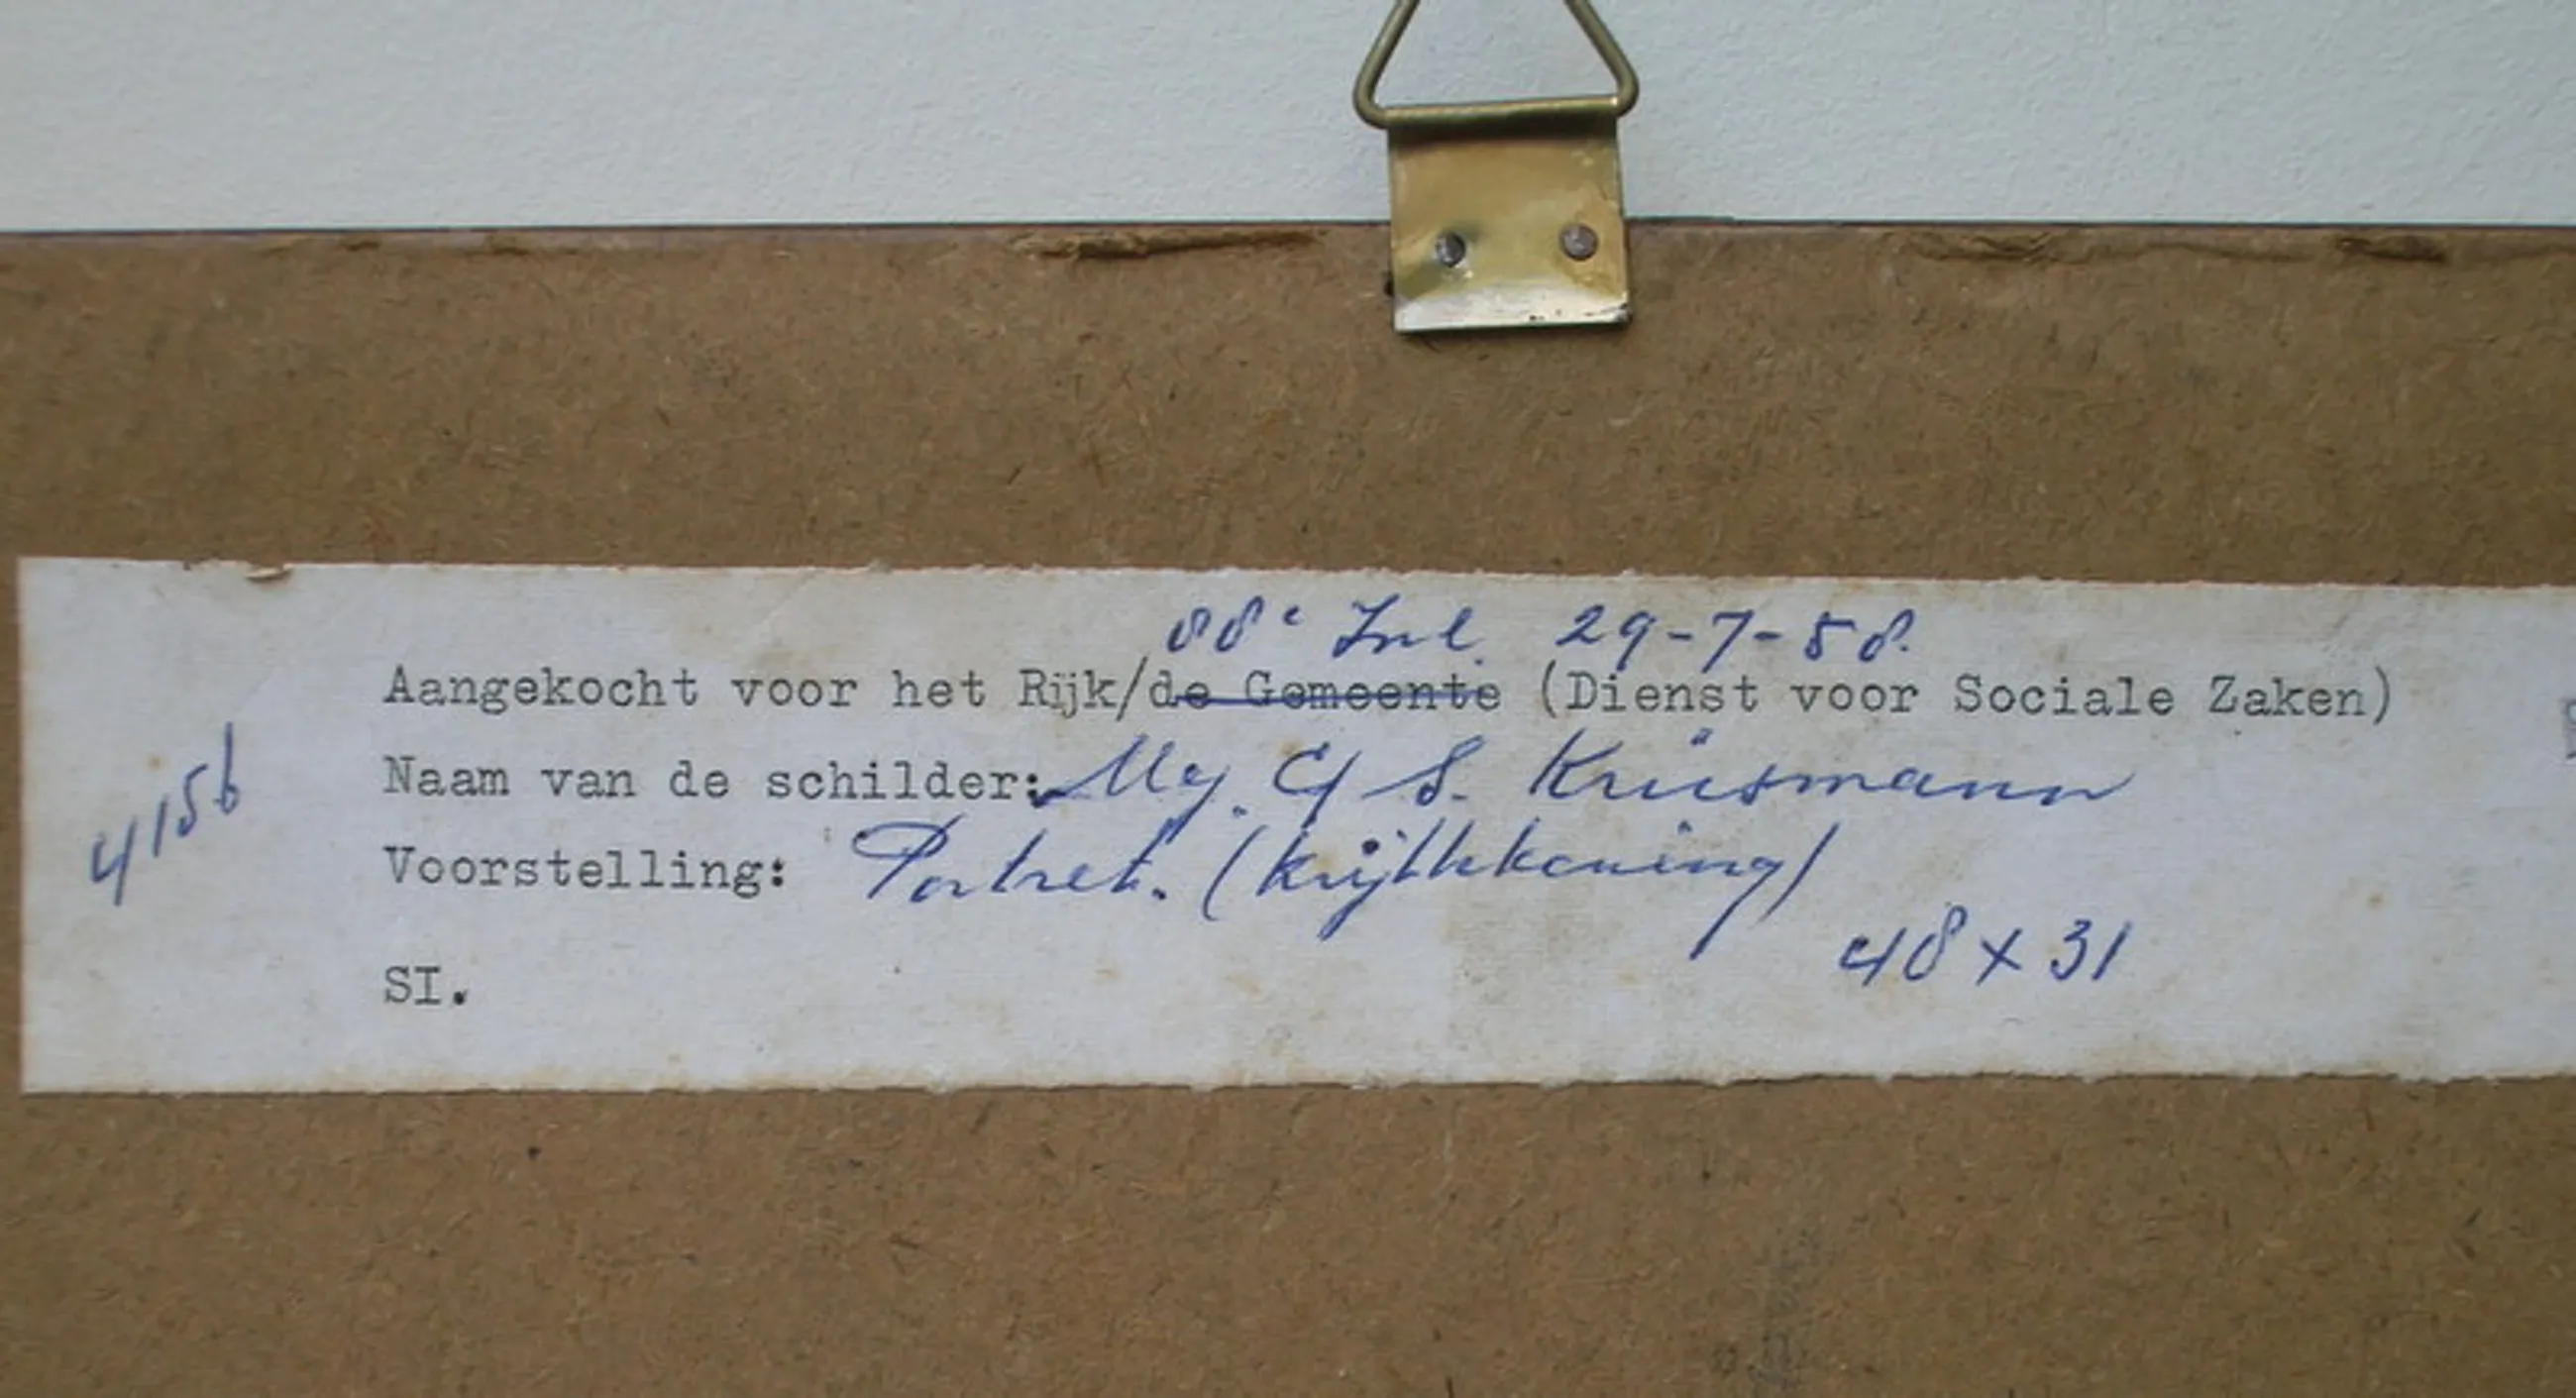 88e Inl. 29-7-58.
Aangekocht voor het Rijk/de Gemeente (Dienst voor Sociale Zaken)
4156
Naam van de schilder: Mej. C S. Krüsmann
Voorstelling: Portret. (krijttekening)
48 x 31
SI.